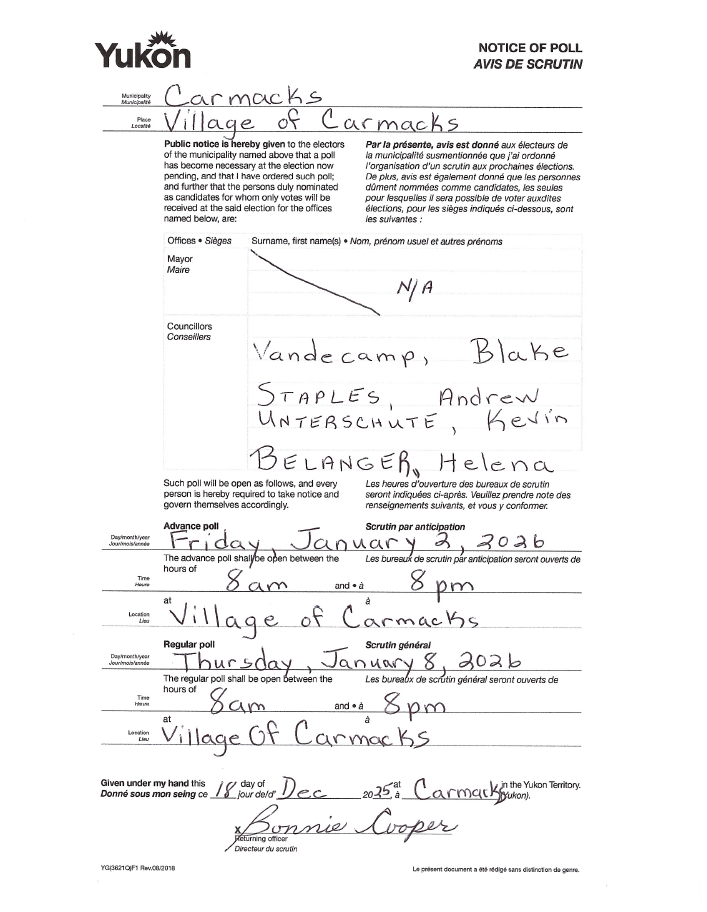 Yukon
NOTICE OF POLL
AVIS DE SCRUTIN
Municipality
Municipalité
Carmacks
Place
Localité
Village of Carmacks
Public notice is hereby given to the electors
of the municipality named above that a poll
has become necessary at the election now
pending, and that I have ordered such poll;
and further that the persons duly nominated
as candidates for whom only votes will be
received at the said election for the offices
named below, are:
Par la présente, avis est donné aux électeurs de
la municipalité susmentionnée que j'ai ordonné
l'organisation d'un scrutin aux prochaines élections.
De plus, avis est également donné que les personnes
dûment nommées comme candidates, les seules
pour lesquelles il sera possible de voter auxdites
élections, pour les sièges indiqués ci-dessous, sont
les suivantes :
Offices • Sièges
Surname, first name(s) • Nom, prénom usuel et autres prénoms
Mayor
Maire
N/A
Councillors
Conseillers
Vandecamp, Blake
STAPLES, Andrew
UNTERSCHUTE, Kevin
BELANGER, Helena
Such poll will be open as follows, and every
person is hereby required to take notice and
govern themselves accordingly.
Les heures d'ouverture des bureaux de scrutin
seront indiquées ci-après. Veuillez prendre note des
renseignements suivants, et vous y conformer.
Advance poll
Scrutin par anticipation
Day/month/year
Jour/mois/année
Friday, January 2, 2026
The advance poll shall be open between the
hours of
Les bureaux de scrutin par anticipation seront ouverts de
Time
Heure
8am and • à 8 pm
at
à
Location
Lieu
Village of Carmacks
Regular poll
Scrutin général
Day/month/year
Jour/mois/année
Thursday, January 8, 2026
The regular poll shall be open between the
hours of
Les bureaux de scrutin général seront ouverts de
Time
Heure
8am and • à 8pm
at
à
Location
Lieu
Village Of Carmacks
Given under my hand this 18 day of Dec 2025 at Carmacks in the Yukon Territory.
Donné sous mon seing ce jour de/d' à (Yukon).
x Bonnie Cooper
Returning officer
Directeur du scrutin
YG(3621Q)F1 Rev.08/2018
Le présent document a été rédigé sans distinction de genre.